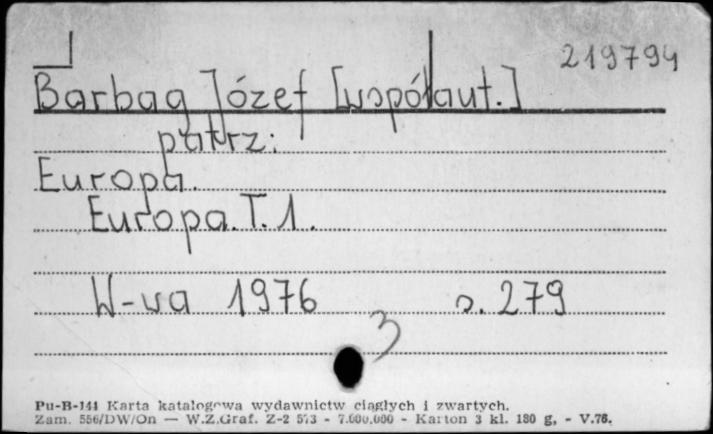 219794
Barbag Józef [współaut.]
patrz:
Europa.
Europa. T. 1.
W-wa 1976 s. 279
3
Pu-B-144 Karta katalogowa wydawnictw ciągłych i zwartych.
Zam. 556/DW/On — W.Z.Graf. Z-2 573 - 7.000.000 - Karton 3 kl. 180 g, - V.76.